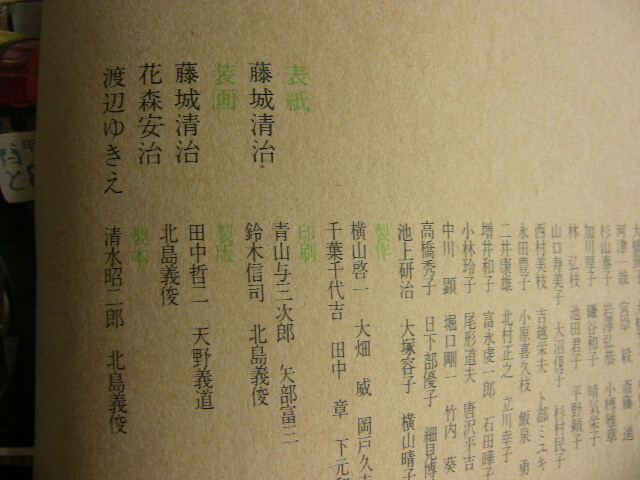 河津一哉 宮岸毅 斎藤進
杉山泰子 岩澤弘恭 小榑雅章
加川厚子 鎌谷和子 晴気栄子
林弘枝 池田君子 平野頼子
山口寿美子 大沼俔子 杉村民子
西村美枝 吉越栄夫 卜部ミユキ
永田豊子 小原喜久枝 飯泉勇
二井康雄 北村正之 立川幸子
増井和子 富永虔一郎 石田暉子
小林玲子 尾形道夫 唐沢平吉
中川顕 堀口剛一 竹内葵
高橋秀子 日下部優子 細見博
池上研治 大塚容子 横山晴子
製作
横山啓一 大畑威 岡戸久
千葉千代吉 田中章 下元
表紙
藤城清治
印刷
青山与三次郎 矢部富三
鈴木信司 北島義俊
装画
藤城清治
花森安治
渡辺ゆきえ
製版
田中哲二 天野義道
北島義俊
製本
清水昭二郎 北島義俊